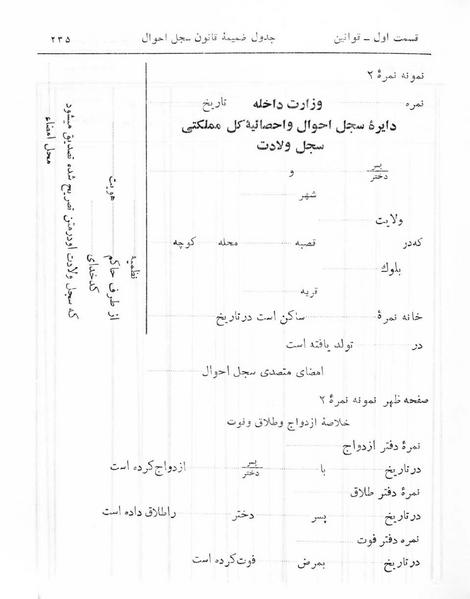 قسمت اول ـ قوانین
جدول ضمیمهٔ قانون سجل احوال
۲۳۵
نمونه نمرهٔ ۲
نمره
وزارت داخله
تاریخ
دایرهٔ سجل احوال و احصائیهٔ کل مملکتی
سجل ولادت
پسر
دختر
و
شهر
ولایت
که در
قصبه
محله
کوچه
بلوک
قریه
خانه نمرهٔ
ساکن است در تاریخ
در
تولد یافته است
امضای متصدی سجل احوال
هویت
نظمیه
از طرف حاکم
کدخدای
که سجل ولادت او در متن تصریح شده تصدیق میشود
محل امضاء
صفحه ظهر نمونه نمرهٔ ۲
خلاصهٔ ازدواج و طلاق و فوت
نمرهٔ دفتر ازدواج
در تاریخ
با
پسر
دختر
ازدواج کرده است
نمرهٔ دفتر طلاق
در تاریخ
پسر
دختر
را طلاق داده است
نمره دفتر فوت
در تاریخ
بمرض
فوت کرده است